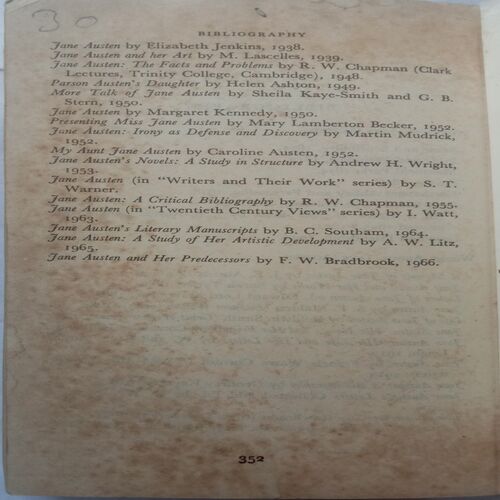 30
BIBLIOGRAPHY
Jane Austen by Elizabeth Jenkins, 1938.
Jane Austen and her Art by M. Lascelles, 1939.
Jane Austen: The Facts and Problems by R. W. Chapman (Clark
Lectures, Trinity College, Cambridge), 1948.
Parson Austen's Daughter by Helen Ashton, 1949.
More Talk of Jane Austen by Sheila Kaye-Smith and G. B.
Stern, 1950.
Jane Austen by Margaret Kennedy, 1950.
Presenting Miss Jane Austen by Mary Lamberton Becker, 1952.
Jane Austen: Irony as Defense and Discovery by Martin Mudrick,
1952.
My Aunt Jane Austen by Caroline Austen, 1952.
Jane Austen's Novels: A Study in Structure by Andrew H. Wright,
1953.
Jane Austen (in "Writers and Their Work" series) by S. T.
Warner.
Jane Austen: A Critical Bibliography by R. W. Chapman, 1955.
Jane Austen (in "Twentieth Century Views" series) by I. Watt,
1963.
Jane Austen's Literary Manuscripts by B. C. Southam, 1964.
Jane Austen: A Study of Her Artistic Development by A. W. Litz,
1965.
Jane Austen and Her Predecessors by F. W. Bradbrook, 1966.
352